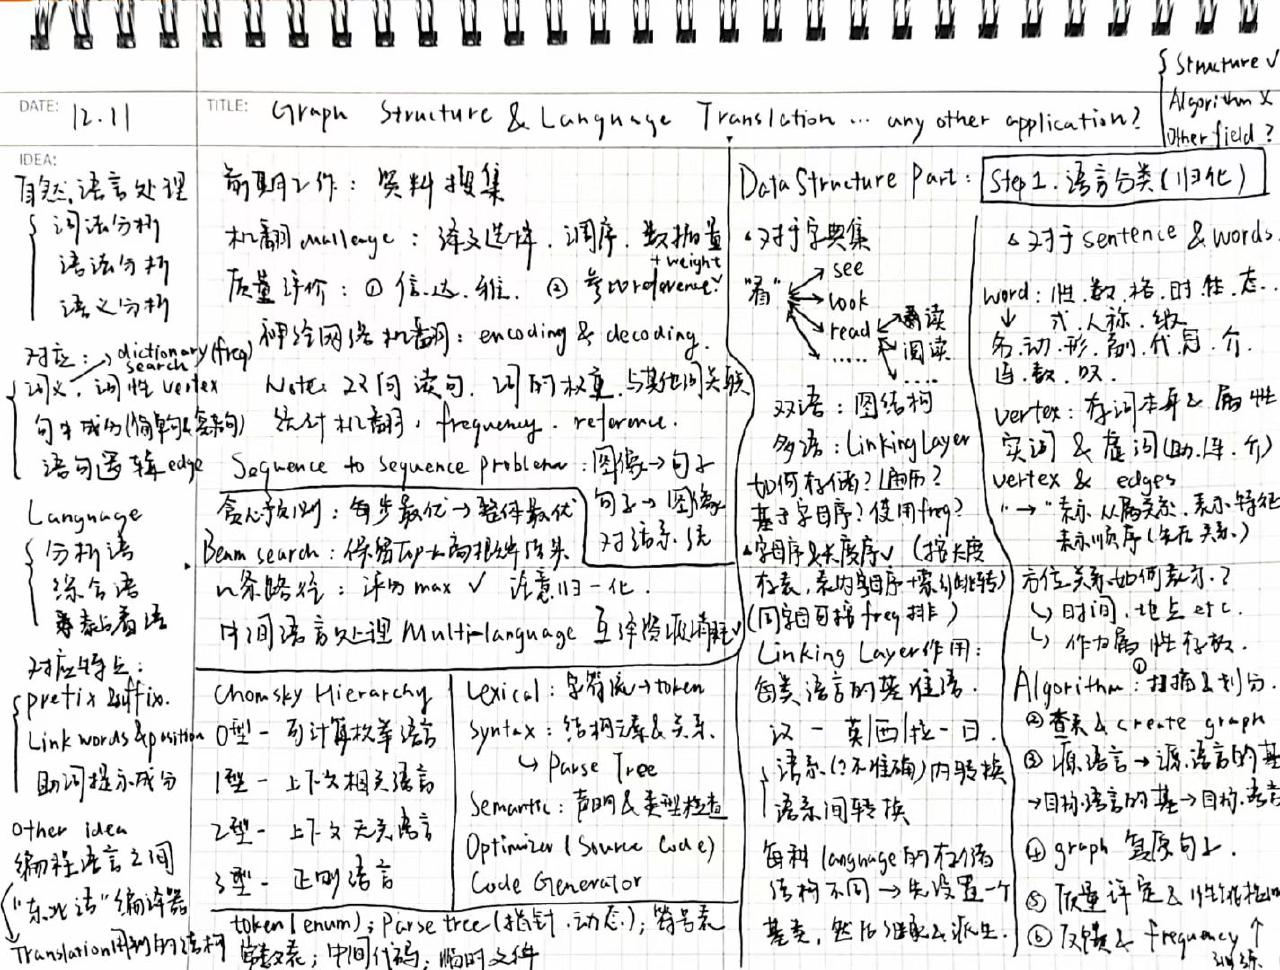 DATE: 12.11
TITLE: Graph Structure & Language Translation ... any other application?
Structure ✓
Algorithm ×
Other field ?
IDEA:
自然语言处理
词法分析
语法分析
语义分析
对应: → dictionary (freq)
search
词义, 词性 vertex
句中成分(简单句&复杂句)
语句逻辑 edge
Language
分析语
综合语
黏着语
对应特点:
prefix & suffix.
Link words & position
助词提示成分
other idea
编程语言之间
"东北话"编译器
Translation 用到的结构
前期工作: 资料搜集
机翻 challenge: 译文选择. 调序. 数据量
+ weight
质量评价: ① 信.达.雅. ② 参考 reference ✓
神经网络机翻: encoding & decoding.
Note: 双向读句. 词的权重. 与其他词关联
统计机翻, frequency. reference.
Sequence to sequence problem: 图像→句子
句子→图像
对话系统
贪心预测: 每步最优→整体最优
Beam search: 保留 Top 高概率
n条路径: 评分 max ✓ 注意归一化.
中间语言处理 Multi-language 互译 ✓
Chomsky Hierarchy
0型 - 可计算枚举语言
1型 - 上下文相关语言
2型 - 上下文无关语言
3型 - 正则语言
Lexical: 字符流→token
Syntax: 结构元素&关系.
↳ Parse Tree
Semantic: 声明&类型检查
Optimizer (Source Code)
Code Generator
token (enum); Parse tree (指针.动态.); 符号表
常数表; 中间代码; 临时文件
Data Structure Part:
△对于字典集
"看" see
look
read 翻读
阅读
.....
....
双语: 图结构
多语: Linking Layer
如何存储? 遍历?
基于字母序? 使用freq?
△字母序&长度序 ✓ (按长度
存表, 表内字母序+索引跳转)
(同字母可按 freq 排)
Linking Layer作用:
每类语言的基准语.
汉 - 英|西|拉 - 日.
语系(?不准确)内转换
语系间转换
每种 language 的存储
结构不同→先设置一个
基类, 然后继承&派生.
Step 1. 语言分类(归化)
△ 对于 sentence & words.
word: 性.数.格.时.性.态.
式.人称.级
名.动.形.副.代.冠.介.
连.数.叹.
vertex: 存词本身 & 属性
实词 & 虚词(助.连.介)
vertex & edges
"→" 表示从属关系. 表示特征
表示顺序(先后关系.)
方位关系如何表示?
↳ 时间.地点 etc.
↳ 作为属性存放.
Algorithm: ① 扫描&划分.
② 查表 & create graph
③ 源语言→源语言的基
→目标语言的基→目标语言
④ graph 复原句子.
⑤ 质量评定 & 性能检测
⑥ 反馈 & frequency ↑
训练